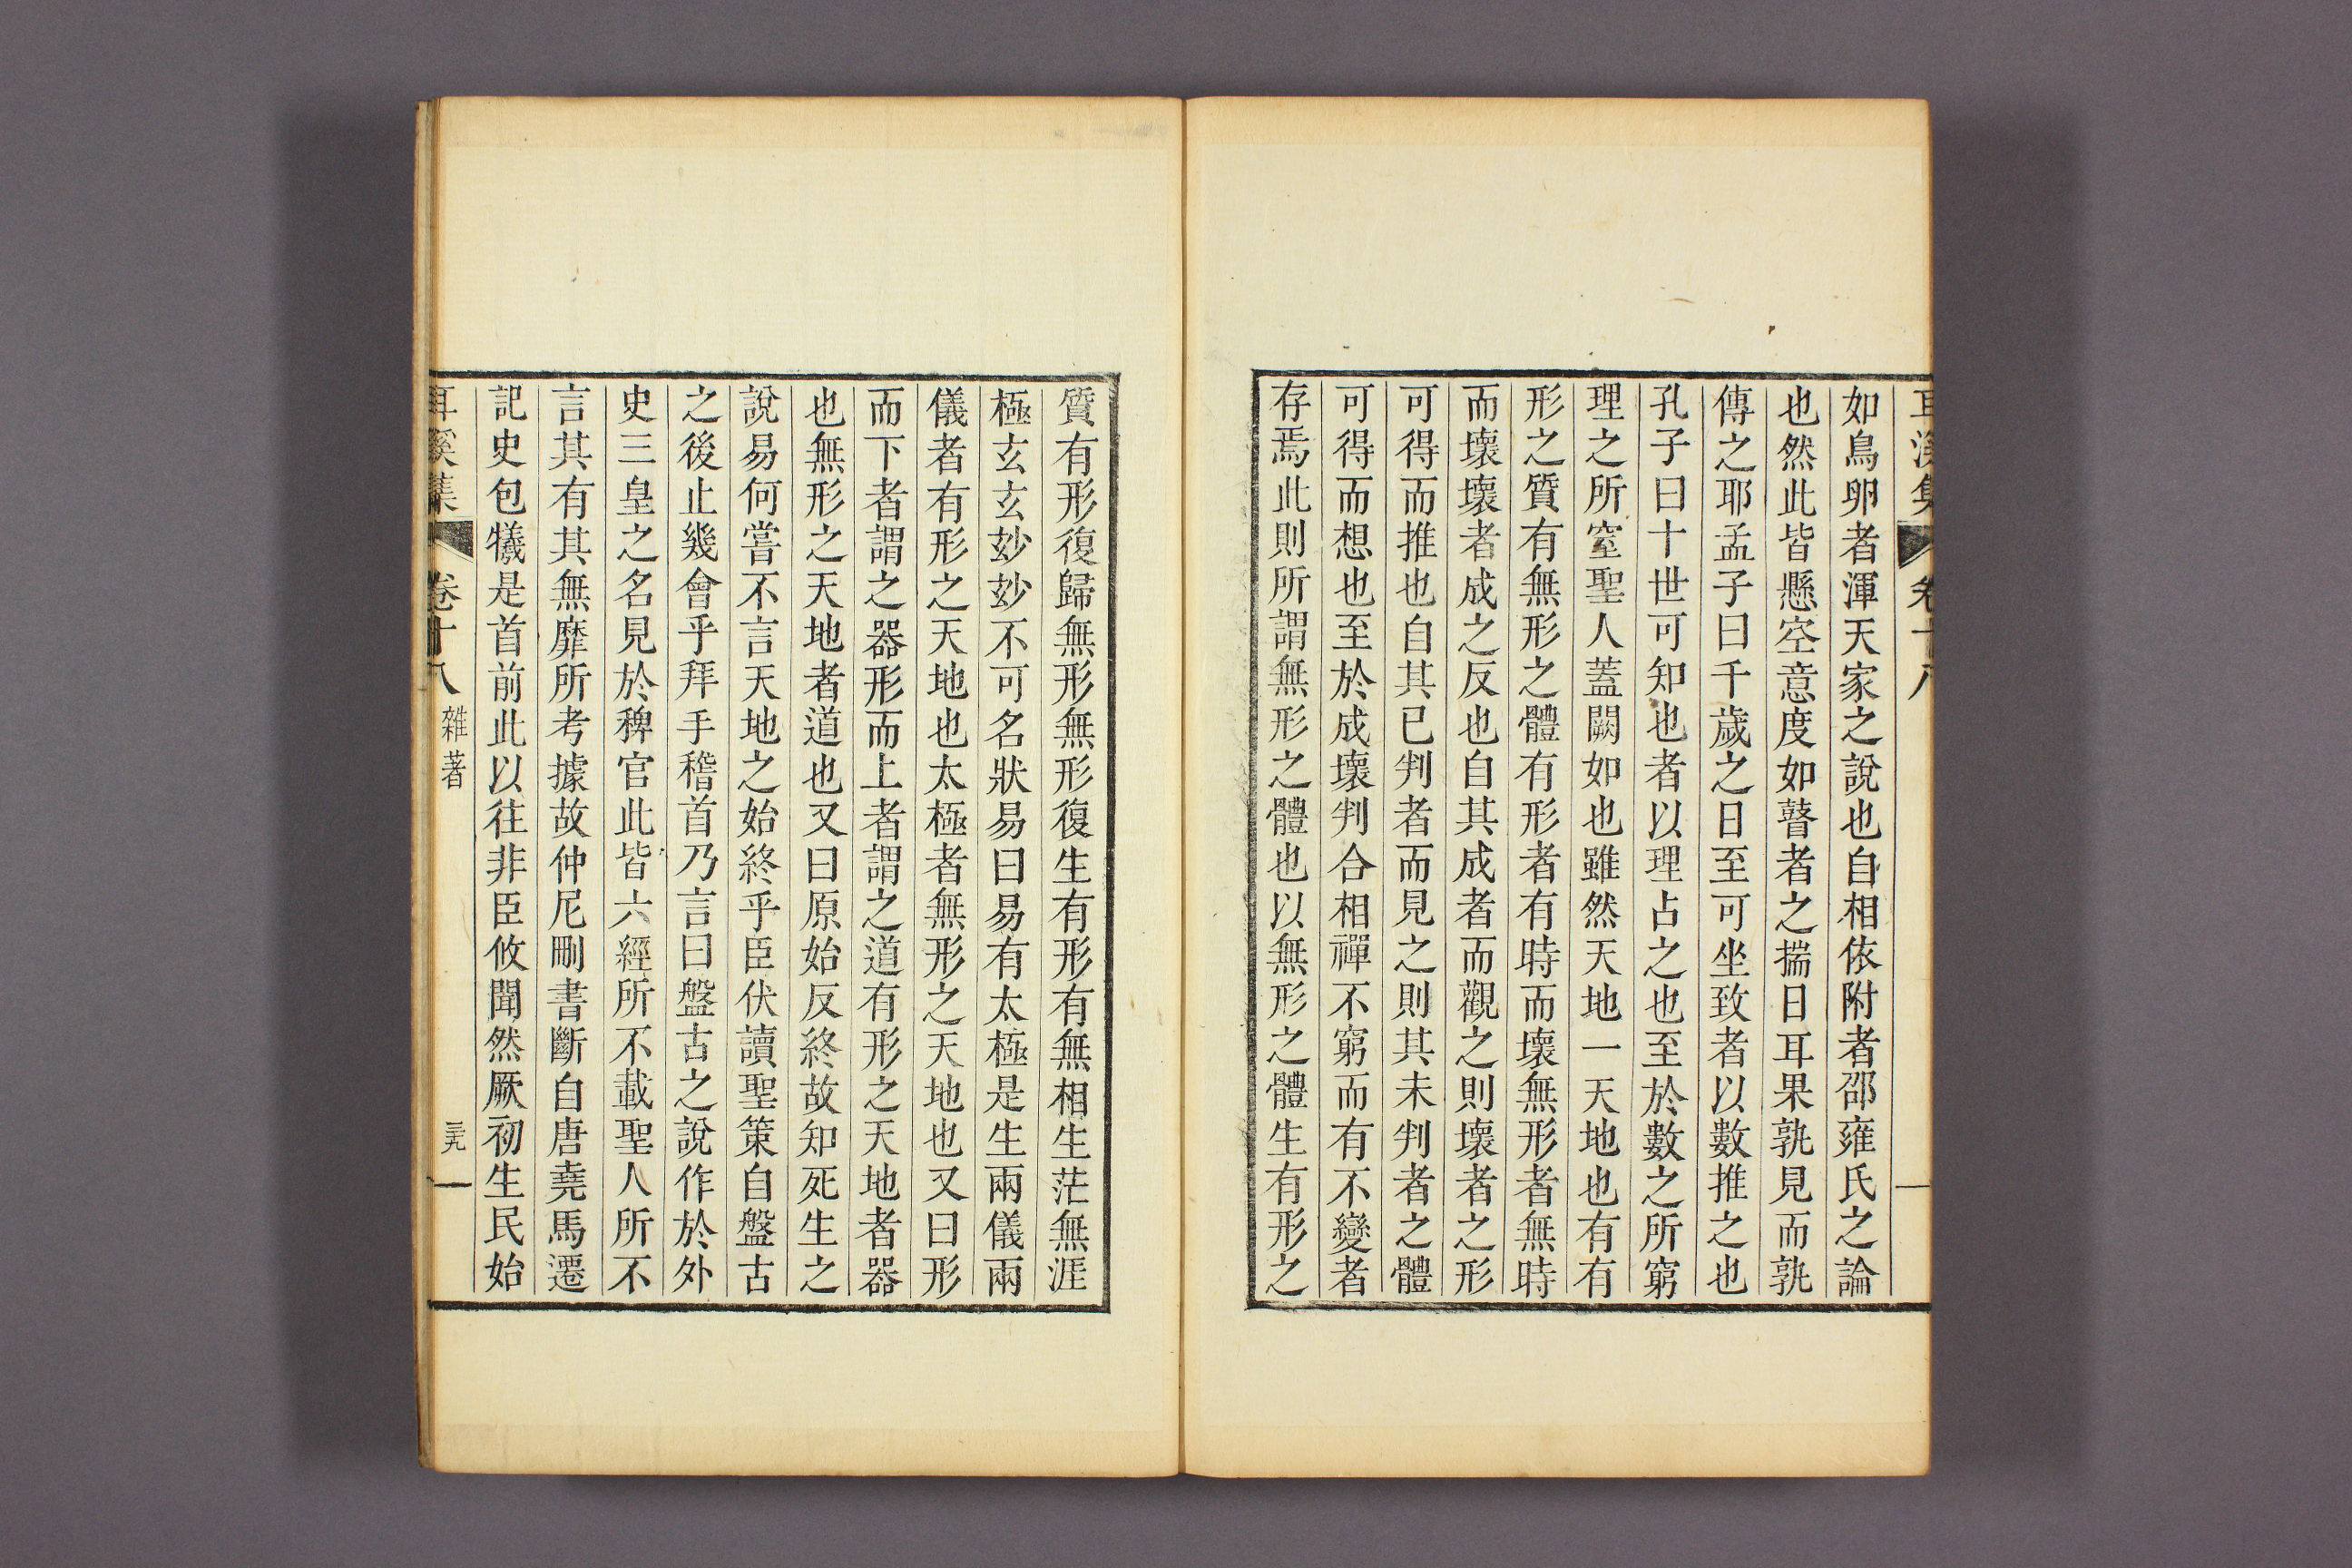 耳溪集 卷十八
如鳥卵者渾天家之說也自相依附者邵雍氏之論
也然此皆懸空意度如瞽者之揣日耳果孰見而孰
傳之耶孟子曰千歲之日至可坐致者以數推之也
孔子曰十世可知也者以理占之也至於數之所窮
理之所窒聖人蓋闕如也雖然天地一天地也有有
形之質有無形之體有形者有時而壞無形者無時
而壞壞者成之反也自其成者而觀之則壞者之形
可得而推也自其已判者而見之則其未判者之體
可得而想也至於成壞判合相禪不窮而有不變者
存焉此則所謂無形之體也以無形之體生有形之
質有形復歸無形無形復生有形有無相生茫無涯
極玄玄妙妙不可名狀易曰易有太極是生兩儀兩
儀者有形之天地也太極者無形之天地也又曰形
而下者謂之器形而上者謂之道有形之天地者器
也無形之天地者道也又曰原始反終故知死生之
說易何嘗不言天地之始終乎臣伏讀聖策自盤古
之後止幾會乎拜手稽首乃言曰盤古之說作於外
史三皇之名見於稗官此皆六經所不載聖人所不
言其有其無靡所考據故仲尼刪書斷自唐堯馬遷
記史包犧是首前此以往非臣攸聞然厥初生民始
耳溪集 卷十八 雜著 三九